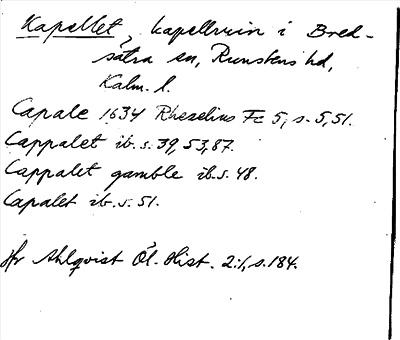 Kapellet, kapellruin i Bred-
sätra sn, Runstens hd,
Kalm. l.
Capale 1634 Rhezelius Fc 5, s. 5, 51.
Cappalet ib. s. 39, 53, 87.
Cappalet gamble ib. s. 48.
Capalet ib. s. 51.
Jfr Ahlqvist Öl. Hist. 2:1, s. 184.